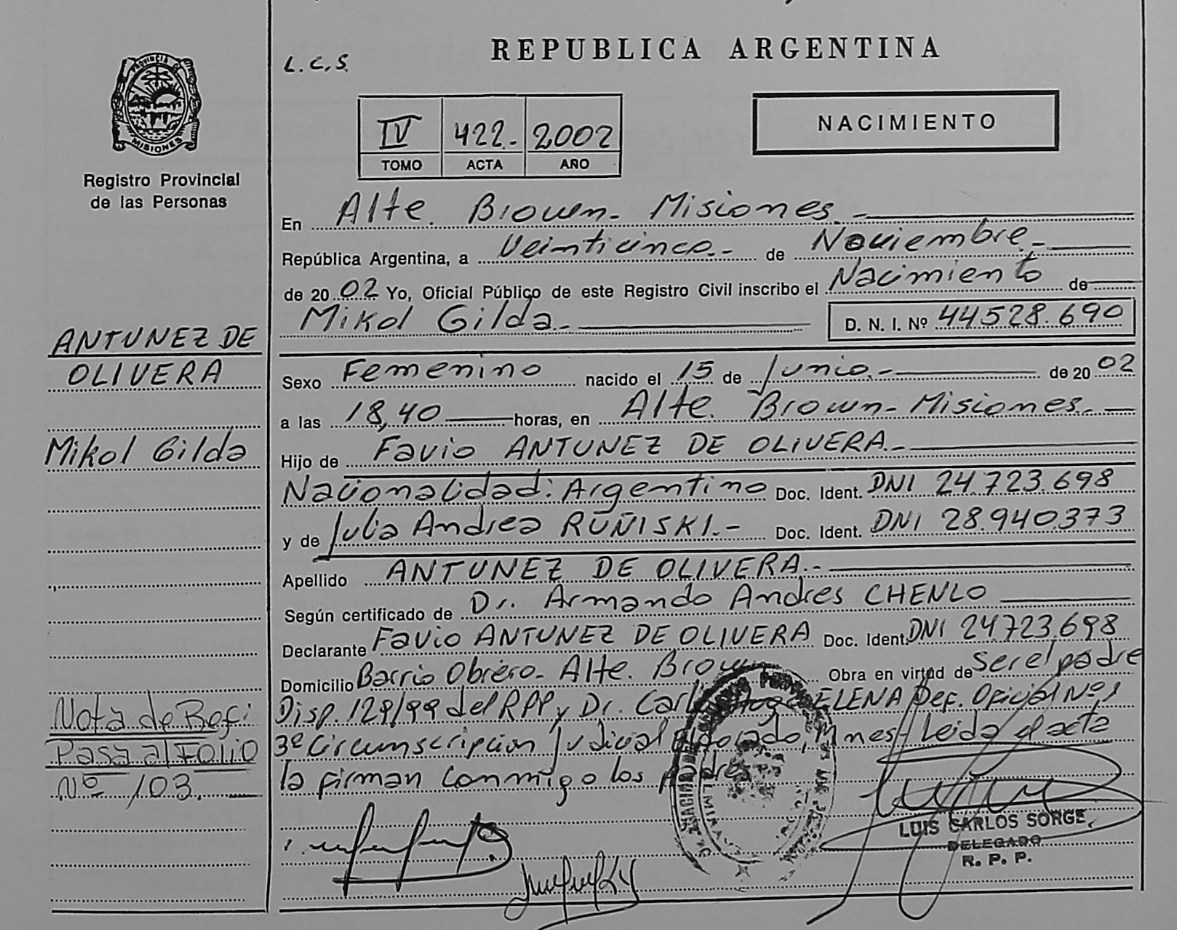 L.C.S.
REPUBLICA ARGENTINA
PROVINCIA DE
MISIONES
Registro Provincial
de las Personas
IV 422- 2002
TOMO ACTA AÑO
NACIMIENTO
En Alte. Brown- Misiones.-
República Argentina, a Veinticinco.- de Noviembre.-
de 2002 Yo, Oficial Público de este Registro Civil inscribo el Nacimiento de
Mikol Gilda.- D. N. I. Nº 44528.690
ANTUNEZ DE
OLIVERA
Mikol Gilda
Sexo Femenino nacido el 15 de Junio.- de 2002
a las 18,40 horas, en Alte. Brown- Misiones.-
Hijo de Favio ANTUNEZ DE OLIVERA.-
Nacionalidad: Argentino Doc. Ident. DNI 24.723.698
y de Julia Andrea RUÑISKI.- Doc. Ident. DNI 28.940.373
Apellido ANTUNEZ DE OLIVERA.-
Según certificado de Dr. Armando Andres CHENLO
Declarante Favio ANTUNEZ DE OLIVERA Doc. Ident. DNI 24.723.698
Domicilio Barrio Obrero- Alte. Brown Obra en virtud de ser el padre
Nota de Refi
Pasa al Folio
Nº 103.
Disp. 129/99 del RPP y Dr. Carlos Hugo ELENA Def. Oficial Nº 1
3º Circunscripcion Judicial Eldorado, Mnes- Leida el acta
la firman conmigo los padres
LUIS CARLOS SORGE
DELEGADO
R. P. P.